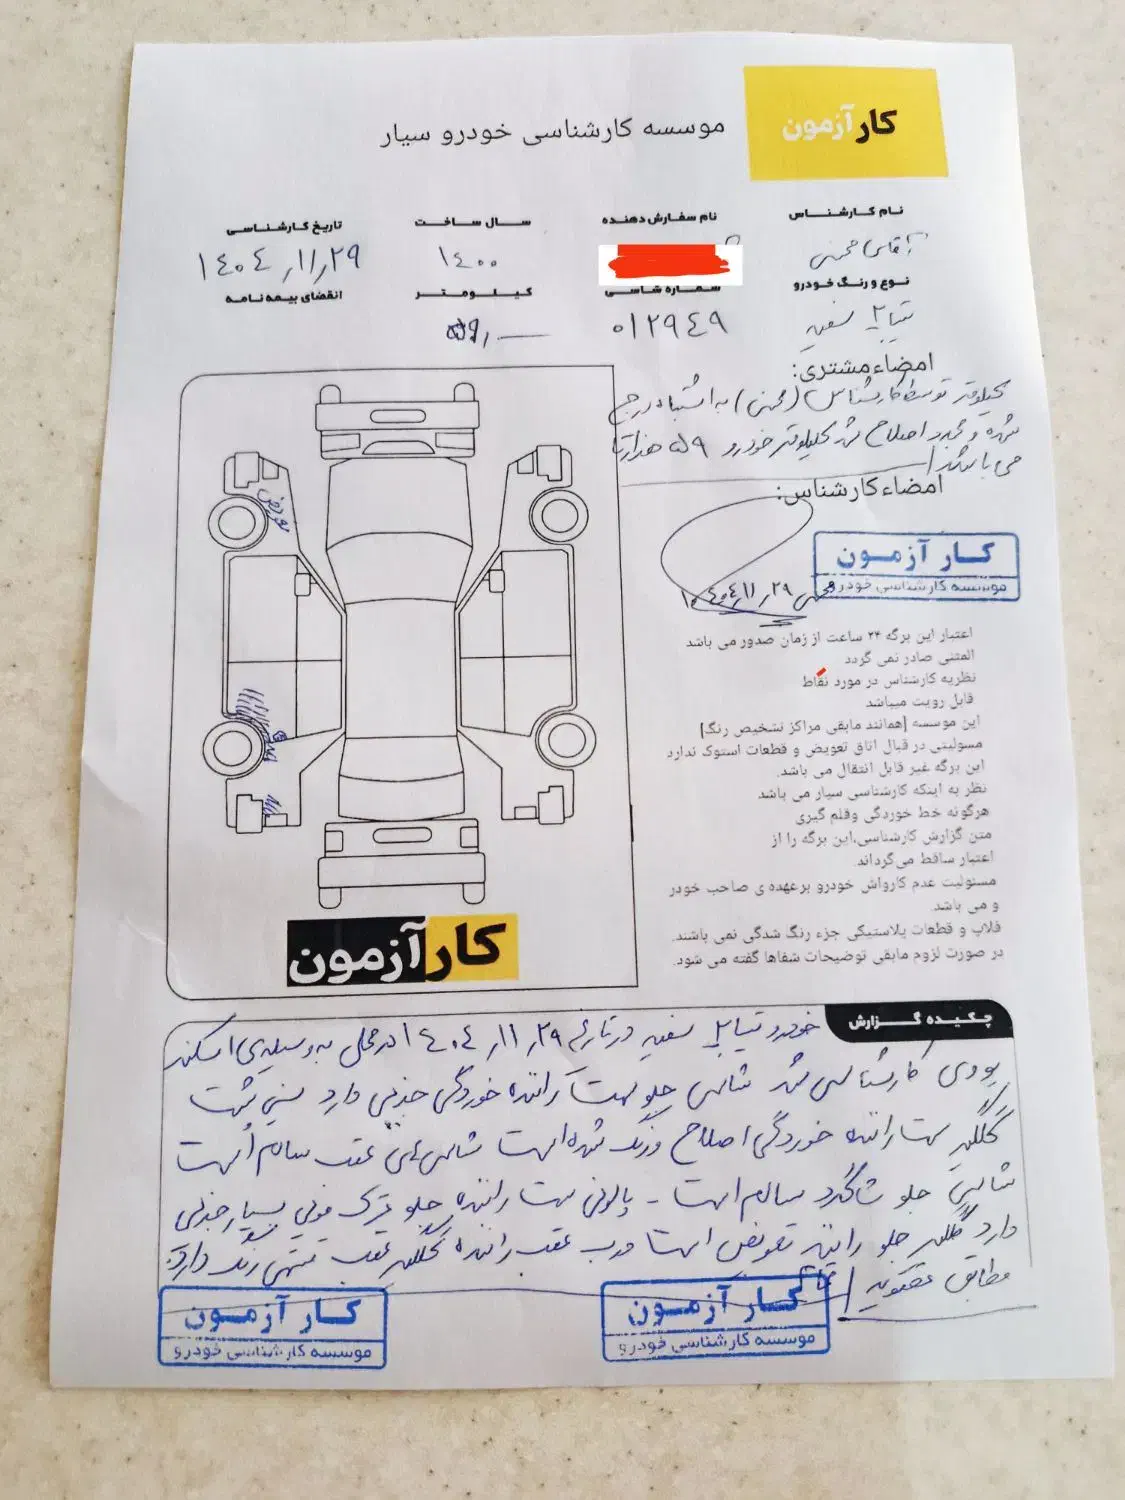 کارآزمون
موسسه کارشناسی خودرو سیار
نام کارشناس
آقای محبی
نام سفارش دهنده
سال ساخت
۱۴۰۰
تاریخ کارشناسی
۱۴۰۴/۱۱/۲۹
نوع و رنگ خودرو
تیبا ۲ سفید
شماره شاسی
۰۱۲۹۴۹
کیلومتر
۵۹/۰۰۰
انقضای بیمه نامه
امضاء مشتری:
کیلومتر توسط کارشناس (محبی) به اشتباه درج
شده و مجدد اصلاح شد کیلومتر خودرو ۵۹ هزارتا
می باشد
امضاء کارشناس:
۱۴۰۴/۱۱/۲۹
کار آزمون
موسسه کارشناسی خودرو
اعتبار این برگه ۲۴ ساعت از زمان صدور می باشد
المثنی صادر نمی گردد
نظریه کارشناس در مورد نقاط
قابل رویت میباشد
این موسسه [همانند مابقی مراکز تشخیص رنگ]
مسولیتی در قبال اتاق تعویض و قطعات استوک ندارد
این برگه غیر قابل انتقال می باشد.
نظر به اینکه کارشناسی سیار می باشد
هرگونه خط خوردگی وقلم گیری
متن گزارش کارشناسی،این برگه را از
اعتبار ساقط می‌گرداند
مسئولیت عدم کارواش خودرو برعهده ی صاحب خودر
و می باشد.
فلاپ و قطعات پلاستیکی جزء رنگ شدگی نمی باشند.
در صورت لزوم مابقی توضیحات شفاها گفته می شود.
تعویض
کارآزمون
چکیده گزارش
خودرو تیبا ۲ سفید در تاریخ ۱۴۰۴/۱۱/۲۹ در محل به وسیله‌ی اسکنر
کارشناسی شد شاسی جلو سمت راننده خوردگی جزئی دارد سینی پشت
گلگیر سمت راننده خوردگی اصلاح و رنگ شده است شاسی‌های عقب سالم است
شاسی جلو شاگرد سالم است - پالونی سمت راننده جلو ترک مویی بسیار جزئی
دارد گلگیر جلو راننده تعویض است درب عقب راننده گلگیر عقب منتهی رنگ دارد.
مطابق
کار آزمون
موسسه کارشناسی خودرو
کار آزمون
موسسه کارشناسی خودرو